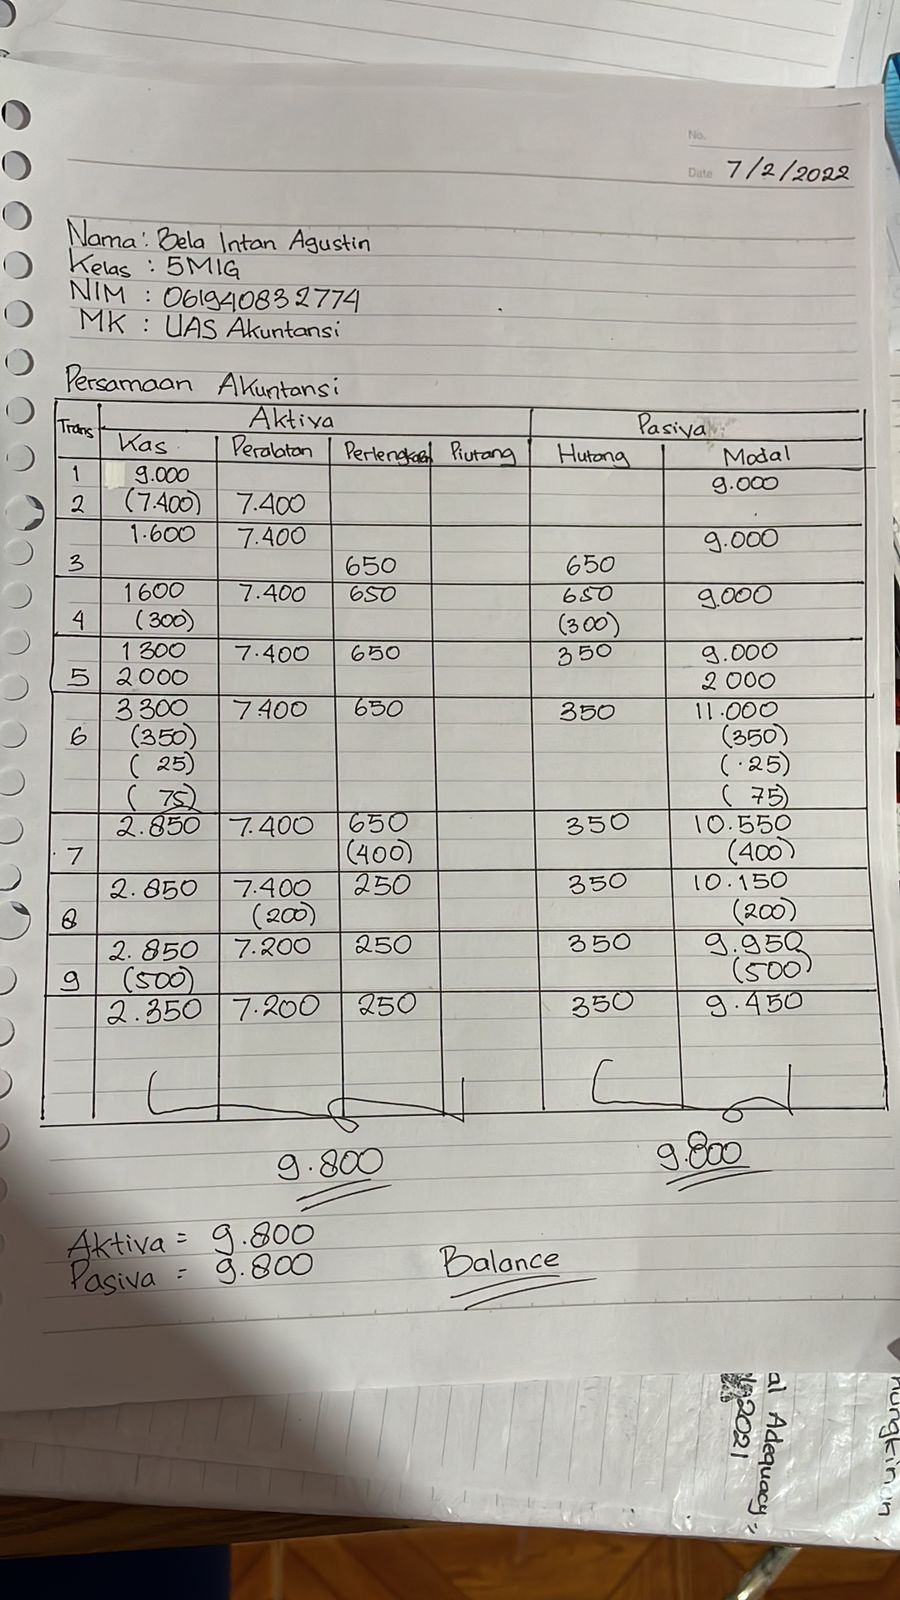 No.
Date 7/2/2022
Nama : Bela Intan Agustin
Kelas : 5MIG
NIM : 061940832774
MK : UAS Akuntansi
Persamaan Akuntansi
Trans Aktiva Pasiva
Kas Peralatan Perlengkapan Piutang Hutang Modal
1 9.000 9.000
2 (7.400) 7.400
1.600 7.400 9.000
3 650 650
1600 7.400 650 650 9.000
4 (300) (300)
1300 7.400 650 350 9.000
5 2000 2000
3300 7.400 650 350 11.000
6 (350) (350)
(25) (25)
(75) (75)
2.850 7.400 650 350 10.550
7 (400) (400)
2.850 7.400 250 350 10.150
8 (200) (200)
2.850 7.200 250 350 9.950
9 (500) (500)
2.350 7.200 250 350 9.450
9.800 9.800
Aktiva = 9.800
Pasiva = 9.800
Balance
al Adequacy,
2021